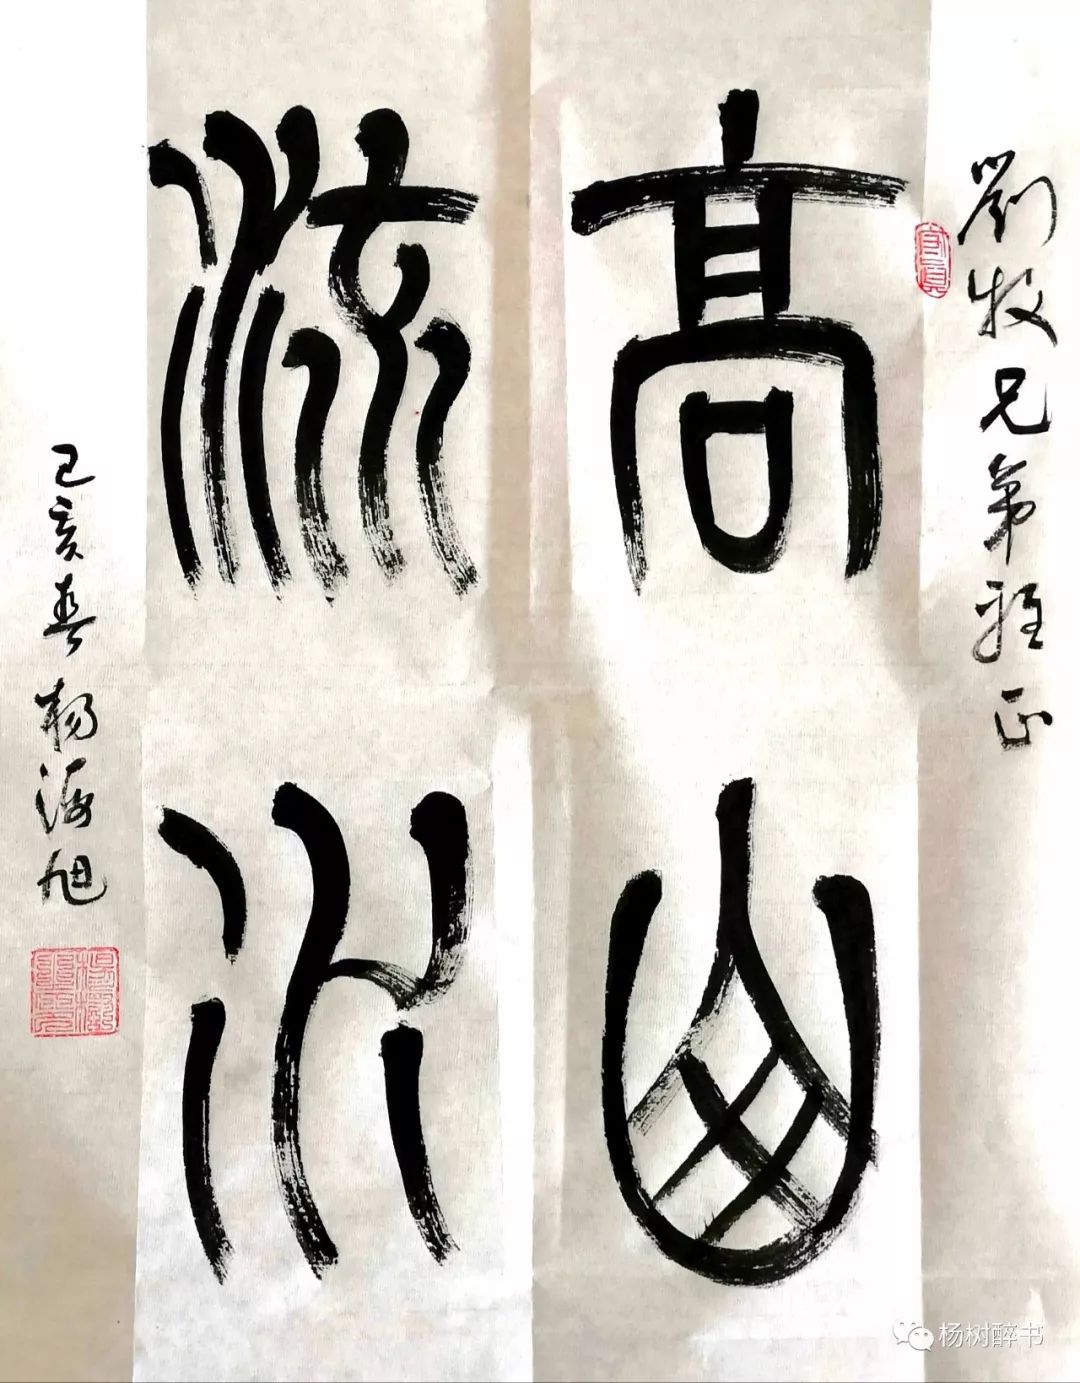 劉牧兄弟雅正
高山
流水
己亥春 杨海旭
杨树醉书